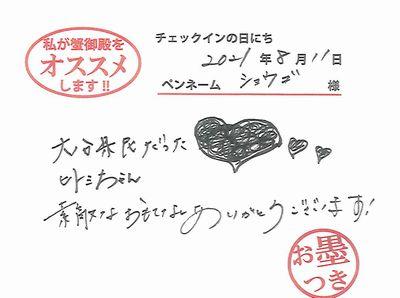 私が蟹御殿を
オススメ
します!!
チェックインの日にち
2021年8月11日
ペンネーム ショウゴ 様
だった
ちゃん
素敵なおもてなしありがとうございます!
お墨
つき